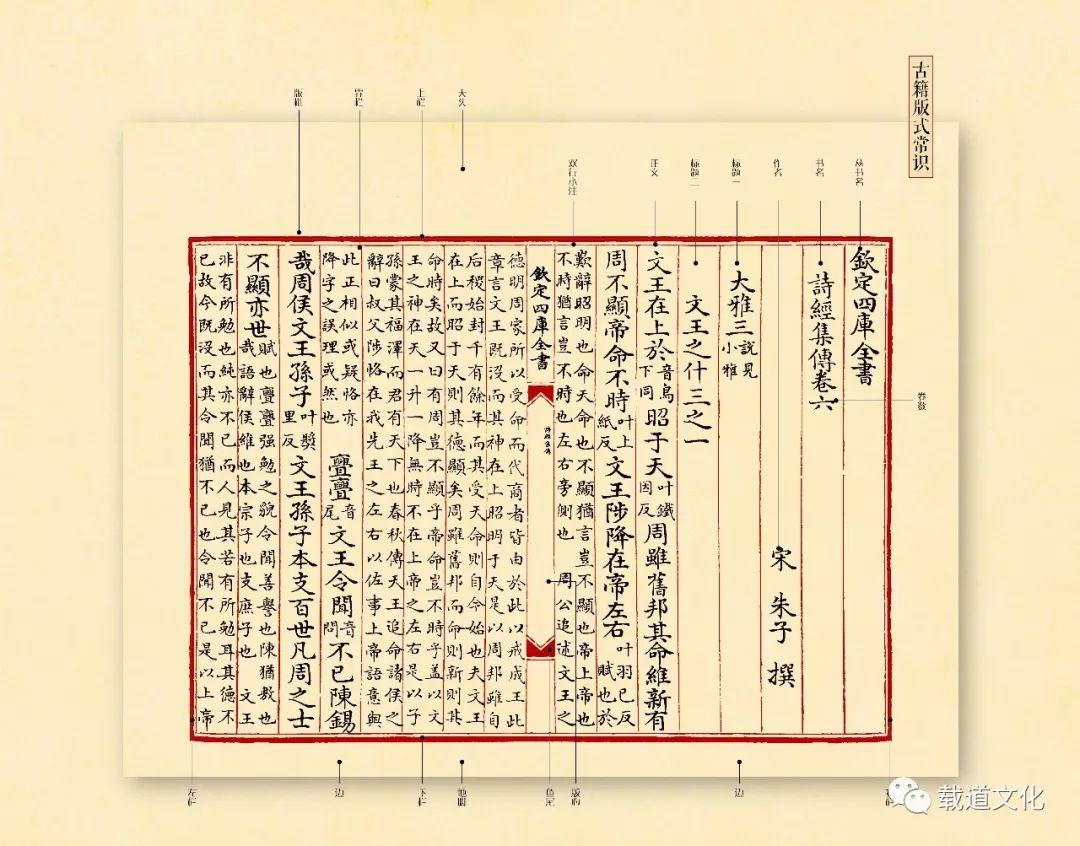 古籍版式常识
丛书名
书名
作者
标题一
标题二
正文
双行小注
上栏
界栏
版框
卷数
欽定四庫全書
詩經集傳卷六
宋 朱子 撰
大雅三 說見小雅
文王之什三之一
文王在上於音烏下同昭于天叶鐵因反周雖舊邦其命維新有
周不顯帝命不時叶上紙反文王陟降在帝左右叶羽已反賦也於
歎辭昭明也命天命也不顯猶言豈不顯也帝上帝也
不時猶言豈不時也左右旁側也 周公追述文王之
欽定四庫全書
詩經集傳
德明周家所以受命而代商者皆由於此以戒成王此
章言文王既没而其神在上昭明于天是以周邦雖自
后稷始封千有餘年而其受天命則自今始也夫文王
在上而昭于天則其德顯矣周雖舊邦而命則新則其
命時矣故又曰有周豈不顯乎帝命豈不時乎蓋以文
王之神在天一升一降無時不在上帝之左右是以子
孫蒙其福澤而君有天下也春秋傳天王追命諸侯之
辭曰叔父陟恪在我先王之左右以佐事上帝語意與
此正相似或疑恪亦降字之誤理或然也 亹亹音尾文王令聞音問不已陳錫
哉周侯文王孫子叶獎里反文王孫子本支百世凡周之士
不顯亦世賦也亹亹强勉之貌令聞善譽也陳猶敷也哉語辭侯維也本宗子也支庶子也 文王
非有所勉也純亦不已而人見其若有所勉耳其德不
已故今既没而其令聞猶不已也令聞不已是以上帝
边
版心
鱼尾
地脚
下栏
边
左栏
载道文化